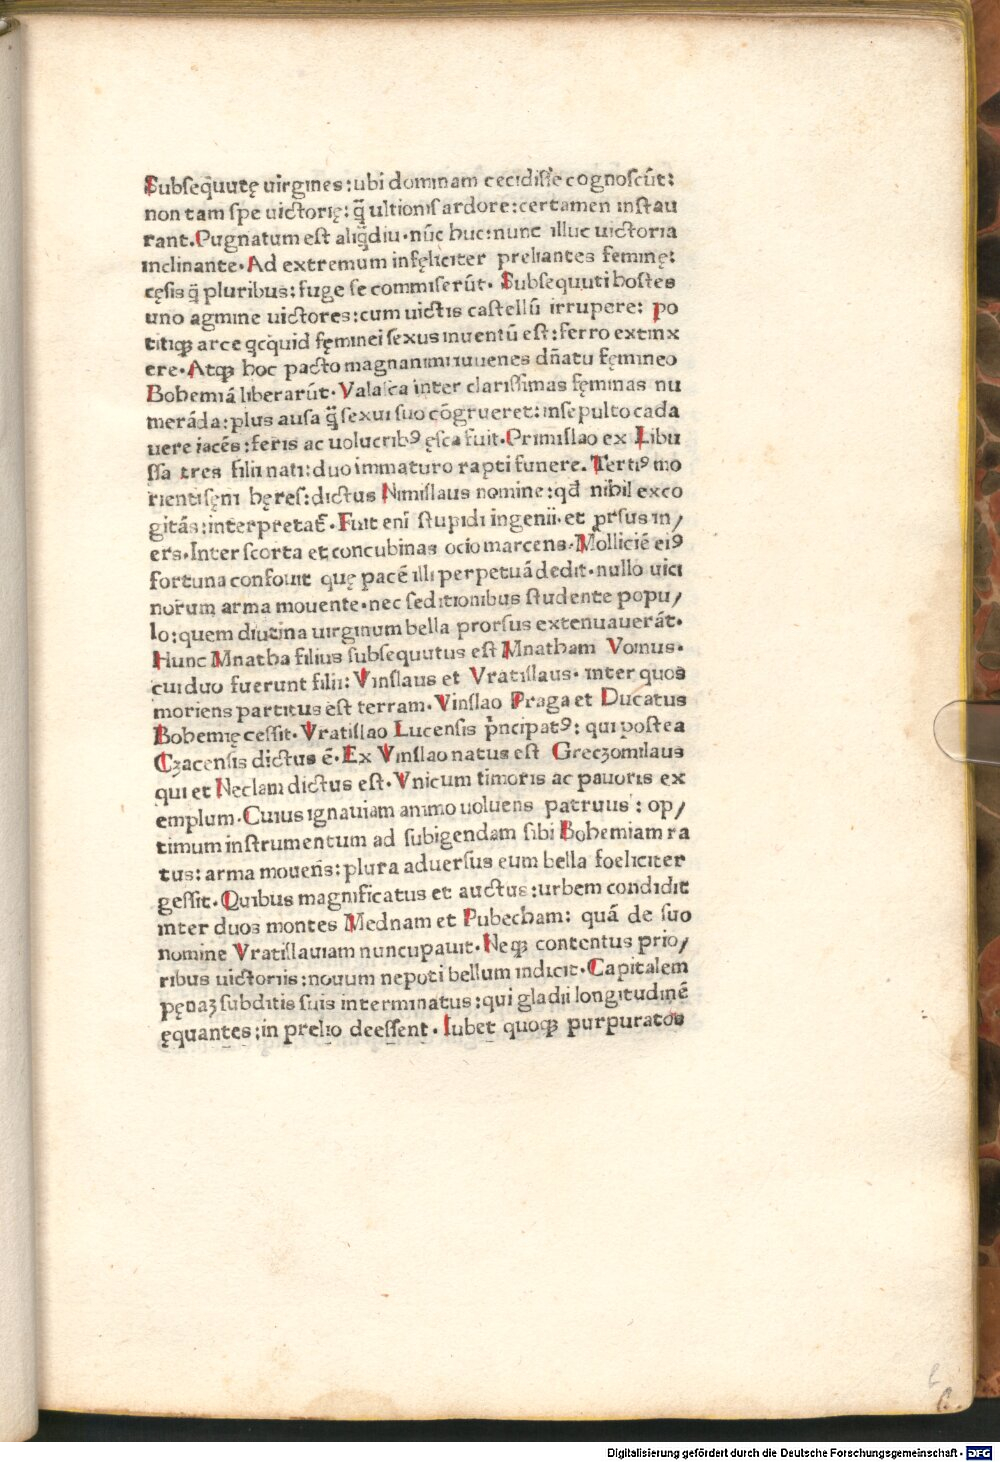 Subseq̃utę uirgines:ubi dominam cecidisſe cognoſcũt:
non tam ſpe uictorię: q̃ ultioniſ ardore:certamen inſtau
rant.Pugnatum eſt aliq̃diu.nũc huc:nunc illuc uictoria
inclinante.Ad extremum infęliciter preliantes feminę:
cęsis q̃ pluribus:fuge ſe commiſerũt. Subſequuti hoſtes
uno agmine uictores:cum uictis caſtellũ irrupere: po
titiqꝫ arce qcq̃uid fęminei ſexus inuentũ eſt:ferro extinx
ere.Atqꝫ hoc pacto magnanimi iuuenes dñatu fęmineo
Bohemiã liberarũt.Valaſca inter clariſſimas fęminas nu
merãda:plus auſa q̃ ſexui ſuo cõgrueret:inſepulto cada
uere iacẽs:feris ac uolucribꝰ ęſca fuit.Primiſlao ex Libu
ſſa tres filii nati:duo immaturo rapti funere.Tertiꝰ mo
rienti ſęni hęreſ:dictus Nimiſlaus nomine:qd̃ nihil exco
gitãs:interpretat̃.Fuit enĩ ſtupidi ingenii.et p̱rſus in/
ers.Inter ſcorta et concubinas ocio marcens.Molliciẽ eiꝰ
fortuna confouit quę pacẽ illi perpetuã dedit.nullo uici
norum arma mouente.nec ſeditionibus ſtudente popu/
lo:quem diutina uirginum bella prorſus extenuauerãt.
Hunc Mnatha filius ſubſequutus eſt Mnatham Voinus.
cui duo fuerunt filii:Vinſlaus et Vratiſlaus.inter quos
moriens partitus eſt terram.Vinſlao Praga et Ducatus
Bohemię ceſſit.Vratiſlao Lucenſis p̃ncipatꝰ: qui poſtea
Cꝫacenſis dictus ẽ.Ex Vinſlao natus eſt Grecꝫomilaus
qui et Neclam dictus eſt.Vnicum timoris ac pauoris ex
emplum.Cuius ignauiam animo uoluens patruus: op/
timum inſtrumentum ad ſubigendam ſibi Bohemiam ra
tus:arma mouenſ:plura aduerſus eum bella foeliciter
geſſit.Quibus magnificatus et auctus:urbem condidit
inter duos montes Mednam et Pubecham: quã de ſuo
nomine Vratiſlauiam nuncupauit.Neqꝫ contentus prio/
ribus uictoriis:nouum nepoti bellum indicit.Capitalem
pęnaꝫ ſubditis ſuis interminatus:qui gladii longitudinẽ
ęquantes:in prelio deeſſent.Iubet quoqꝫ purpuratos
Digitalisierung gefördert durch die Deutsche Forschungsgemeinschaft - DFG